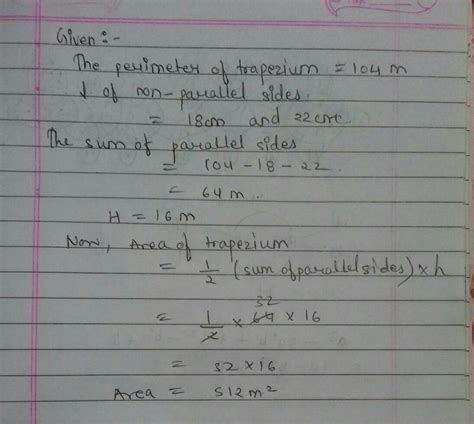 Given :-
The perimeter of trapezium = 104 m
↓ of non-parallel sides.
= 18cm and 22cm
The sum of parallel sides
= 104 - 18 - 22
= 64 m..
H = 16 m
Now, Area of trapezium
= 1/2 (sum of parallel sides) × h
32
= 1/2 × 64 × 16
= 32 × 16
Area = 512 m²